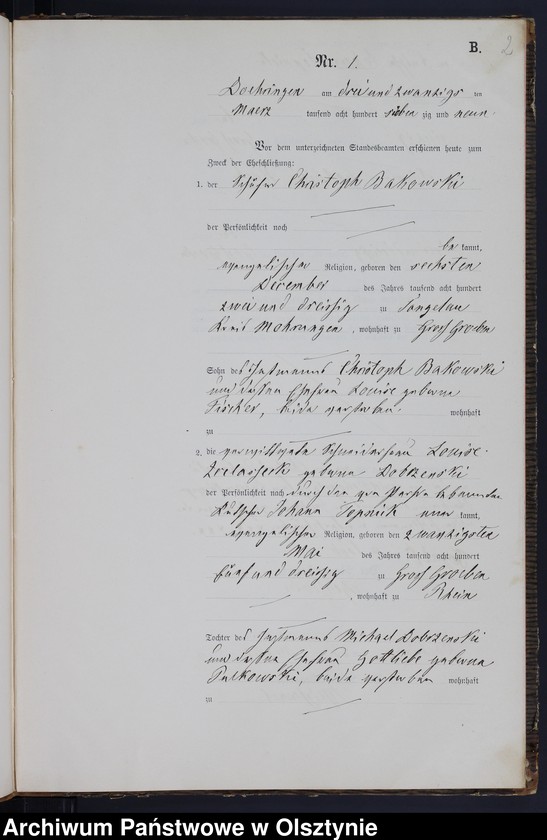 B.
2
Nr. 1.
Doehringen am drei und zwanzigs ten
Maerz tausend acht hundert sieben zig und neun.
Vor dem unterzeichneten Standesbeamten erschienen heute zum
Zweck der Eheschließung:
1. der Schäfer Christoph Bakowski
der Persönlichkeit nach
be kannt,
evangelischer Religion, geboren den sechsten
December des Jahres tausend acht hundert
zwei und dreissig zu
Kreis Mohrungen, wohnhaft zu Groß Groeben
Sohn des Christoph Bakowski
und dessen Ehefrau Louise geborne
Fischer, beide verstorben wohnhaft
zu
2. die verwittwete Schneiderfrau Louise
geborne Dobrzenski
der Persönlichkeit nach durch den von Person bekannten
Johann kannt,
evangelischer Religion, geboren den zwanzigsten
Mai des Jahres tausend acht hundert
fünf und dreissig zu Groß Groeben
, wohnhaft zu Rhein
Tochter des Michael Dobrzenski
und dessen Ehefrau Gottliebe geborne
beide verstorben wohnhaft
zu
Archiwum Państwowe w Olsztynie